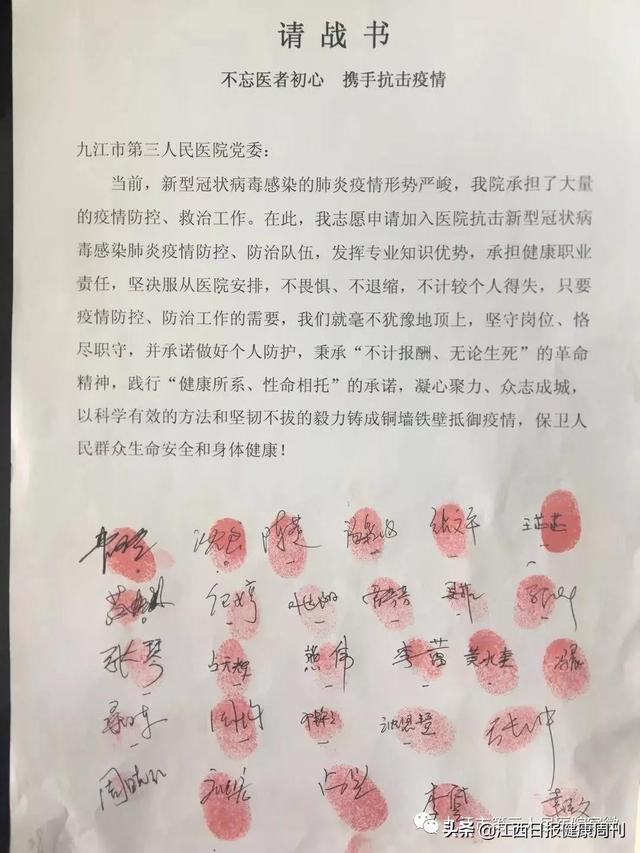 请战书
不忘医者初心 携手抗击疫情
九江市第三人民医院党委：
当前，新型冠状病毒感染的肺炎疫情形势严峻，我院承担了大量
的疫情防控、救治工作。在此，我志愿申请加入医院抗击新型冠状病
毒感染肺炎疫情防控、防治队伍，发挥专业知识优势，承担健康职业
责任，坚决服从医院安排，不畏惧、不退缩，不计较个人得失，只要
疫情防控、防治工作的需要，我们就毫不犹豫地顶上，坚守岗位、恪
尽职守，并承诺做好个人防护，秉承“不计报酬、无论生死”的革命
精神，践行“健康所系、性命相托”的承诺，凝心聚力、众志成城，
以科学有效的方法和坚韧不拔的毅力铸成铜墙铁壁抵御疫情，保卫人
民群众生命安全和身体健康！
陈楚
任婷
张琴 熊伟 李蕾
周
李
头条 @江西日报健康周刊